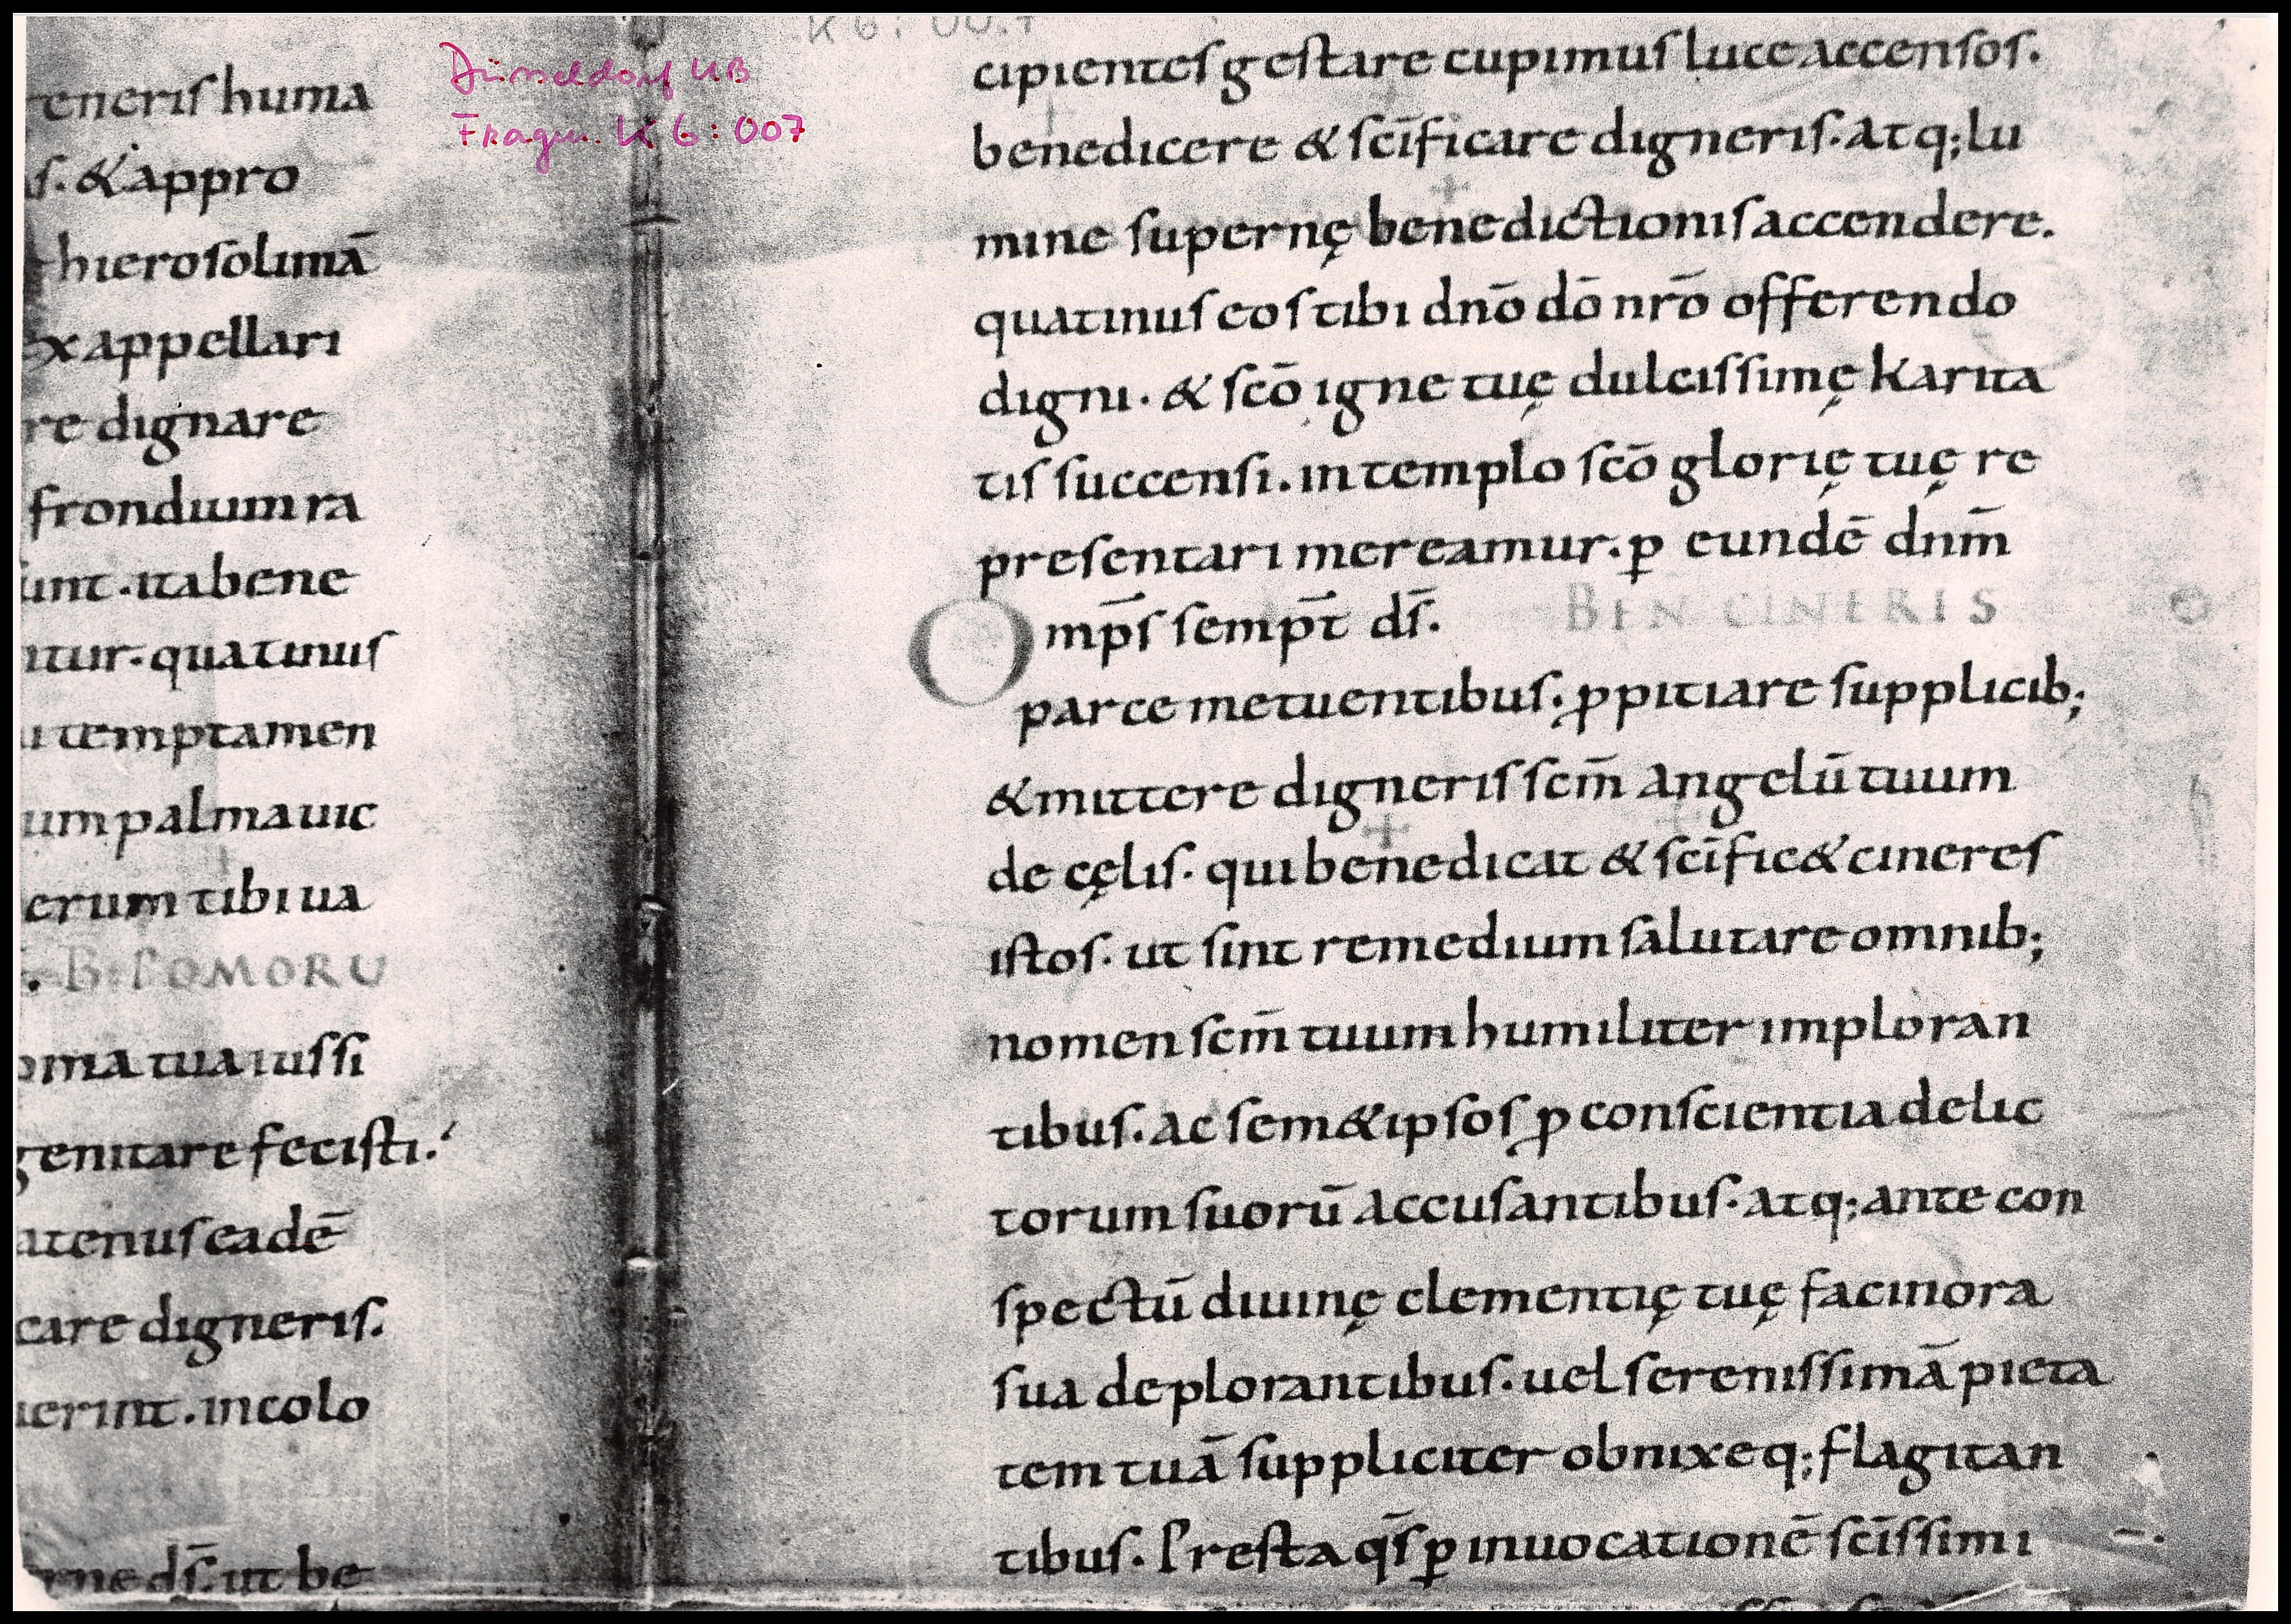 Düsseldorf UB
Fragm. K 6:007
K 6:00.7
eneriſ huma
ſ. & appro
hieroſolimā
ex appellari
re dignare
frondium ra
int. ita bene
ntur. quatinuſ
i temptamen
um palma uic
erum tibi ua
. B: POMORU
oma tua iuſſi
genitare feciſti.
atenuſ eadē
care digneriſ.
uerint. in colo
ne dſ̄. ut be
cipienteſ geſtare cupimuſ luce accenſoſ.
benedicere & ſcīficare digneriſ. atq; lu
mine ſupernę benedictioniſ accendere.
quatinuſ eoſ tibi dnō dō nrō offerendo
digni. & ſcō igne tuę dulciſſimę karita
tiſ ſuccenſi. in templo ſcō glorię tuę re
preſentari mereamur. p̄ eundē dnm̄
Omp̄ſ ſemp̄t dſ̄. BEN CINERIS
parce metuentibuſ. ꝓpitiare ſupplicib;
& mittere digneriſ ſcm̄ angelū tuum
de cęliſ. qui benedicat & ſcīfic& cinereſ
iſtoſ. ut ſint remedium ſalutare omnib;
nomen ſcm̄ tuum humiliter imploran
tibuſ. ac ſem&ipſoſ ꝓ conſcientia delic
torum ſuorū accuſantibuſ. atq; ante con
ſpectū diuinę clementię tuę facinora
ſua deplorantibuſ. uel ſereniſſimā pieta
tem tuā ſuppliciter obnixeq; flagitan
tibuſ. Preſta qſ̄ p̄ inuocationē ſcīſſimi